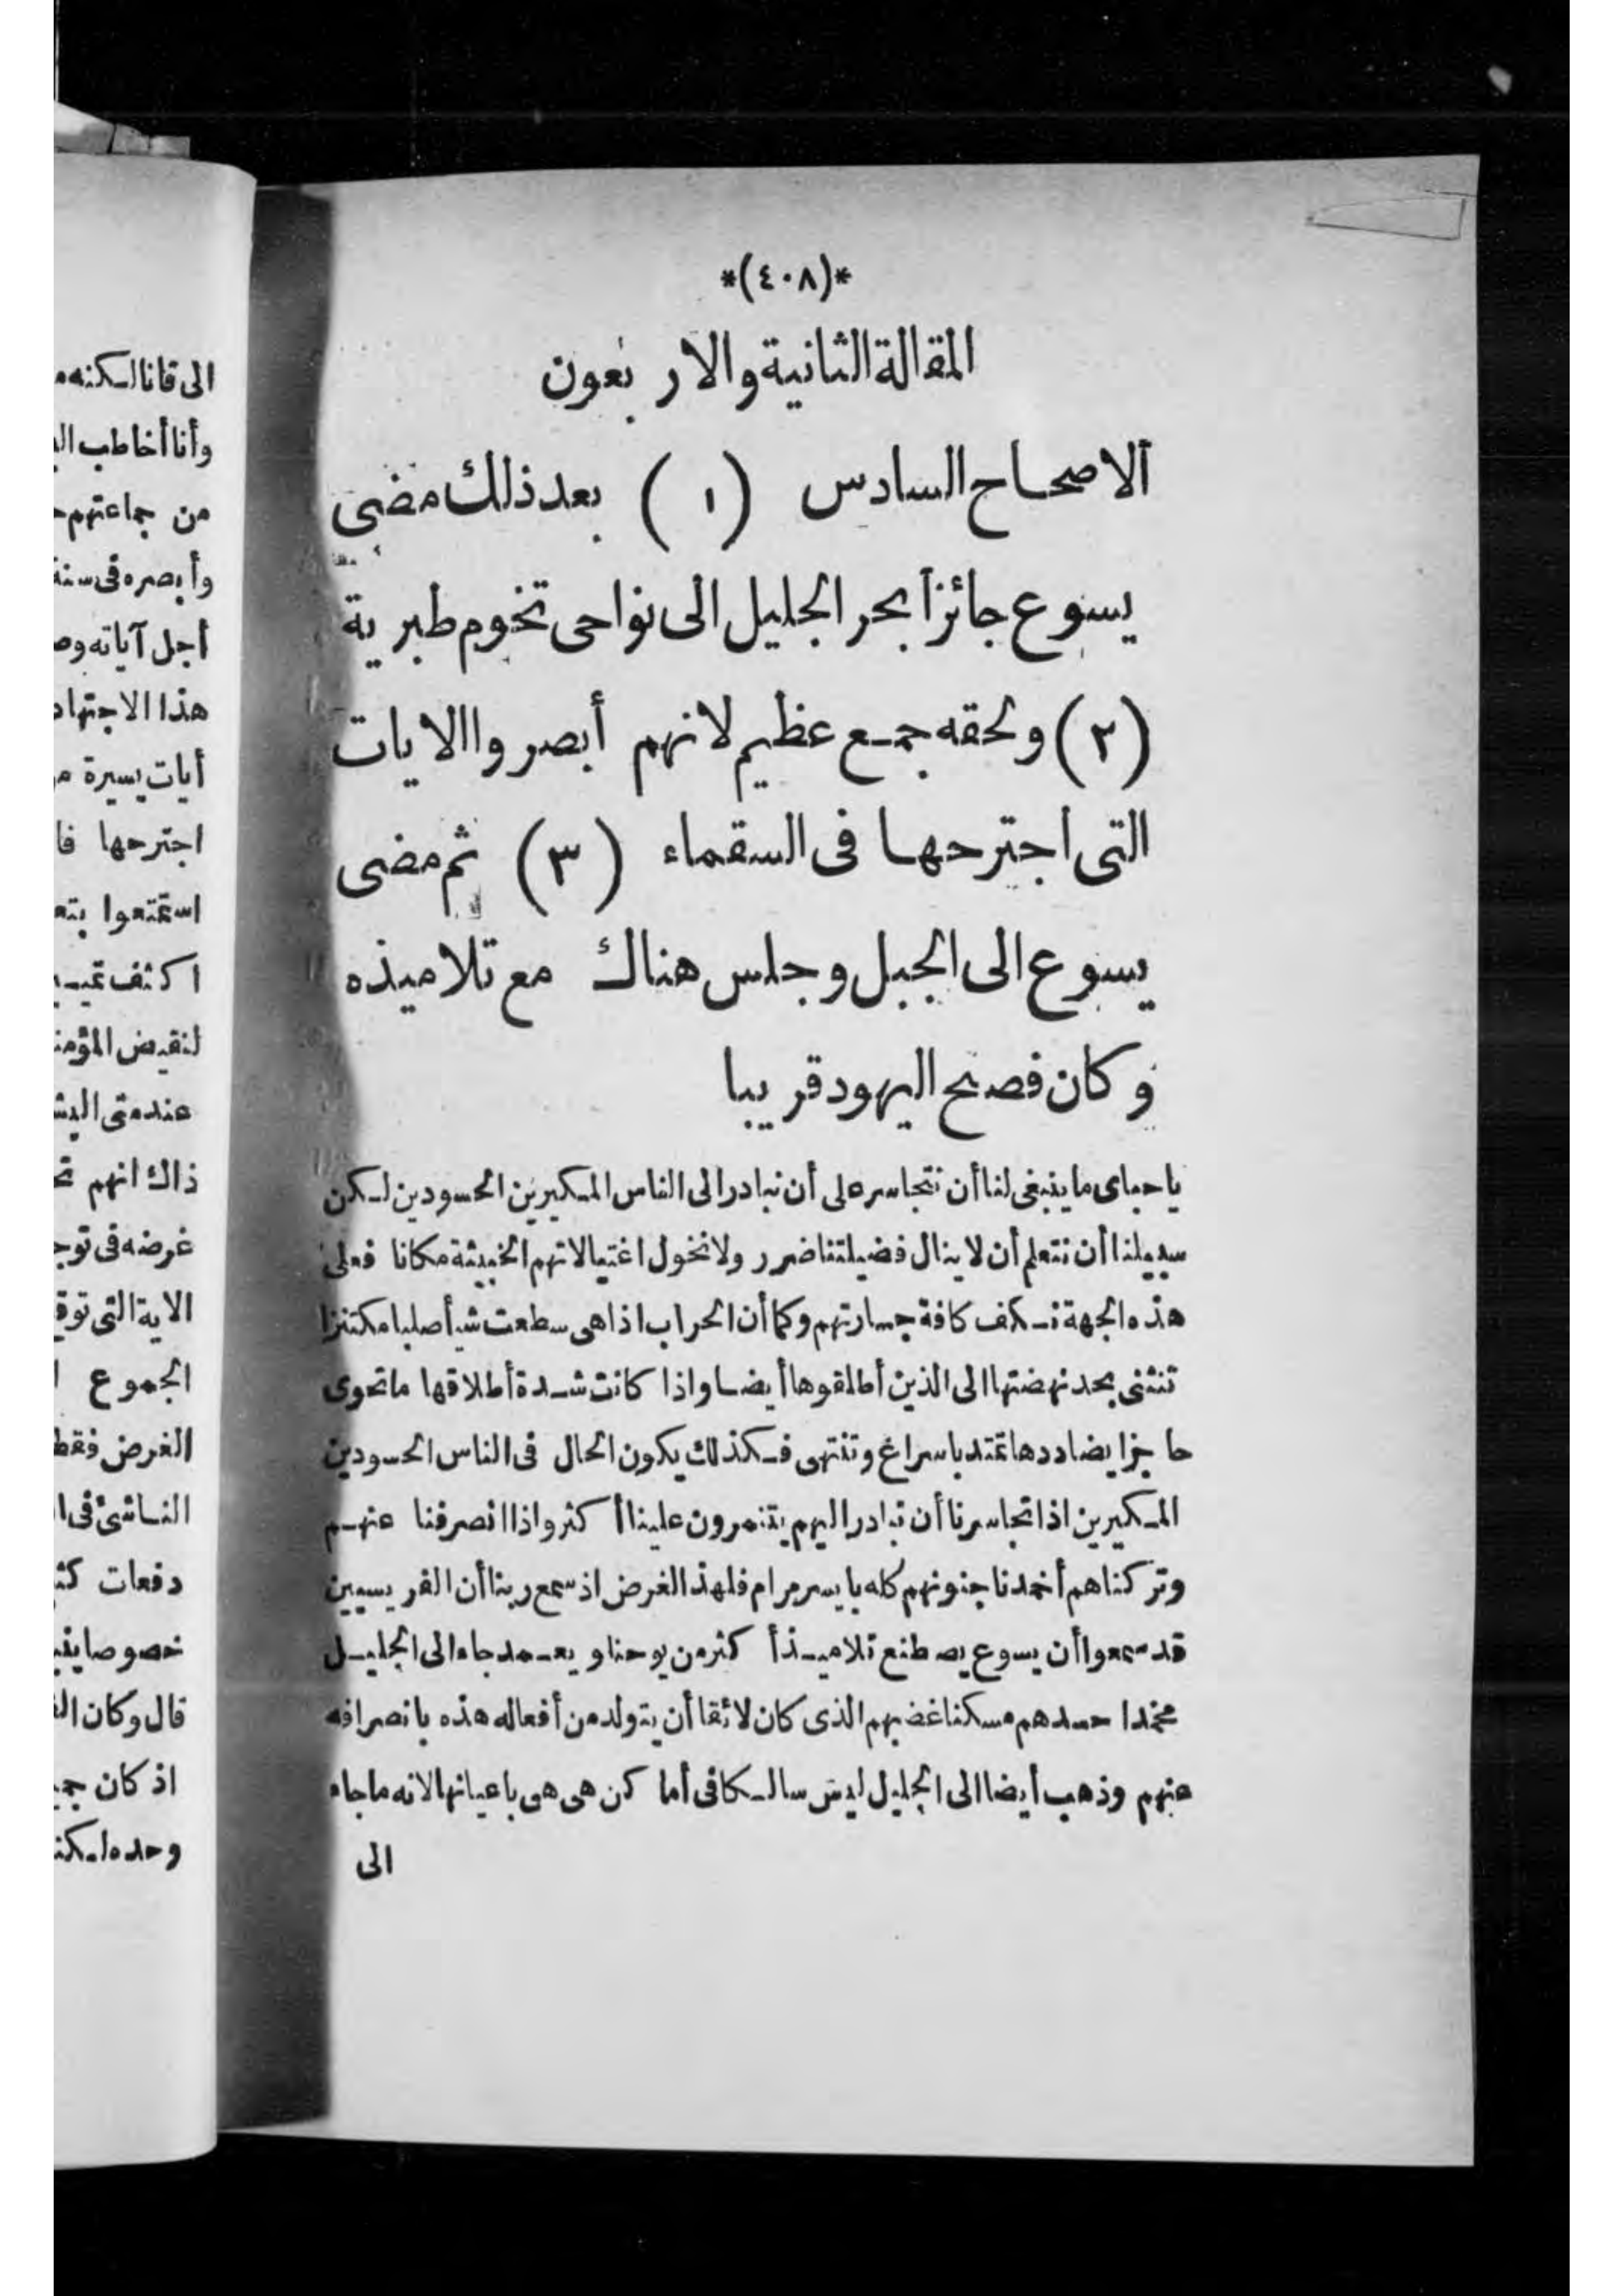 *(٤٠٨)*
المقالة الثانية والاربعون
الاصحاح السادس (١) بعد ذلك مضى
يسوع جائزا بحر الجليل الى نواحى تخوم طبرية
(٢) ولحقه جمع عظيم لانهم أبصروا الايات
التى اجترحها فى السقماء (٣) ثم مضى
يسوع الى الجبل وجلس هناك مع تلاميذه
وكان فصح اليهود قريبا
ياحباى ما ينبغى لنا أن نتجاسر على أن نبادر الى الناس المكيرين الحسودين لكن
سبيلنا أن نتعلم أن لا ينال فضيلتنا ضرر ولا نخول اغتيالاتهم الخبيثة مكانا فعلى
هذه الجهة نكف كافة جسارتهم وكما أن الحراب اذا هى سطعت شيأ صلبا مكتنزا
تنثنى بحد نهضتها الى الذين أطلقوها أيضا واذا كانت شدة أطلاقها ما تحوى
حاجزا يضاددها تمتد باسراع وتنتهى فكذلك يكون الحال فى الناس الحسودين
المكيرين اذا تجاسرنا أن نبادر اليهم يتنمرون علينا أكثر واذا انصرفنا عنهم
وتركناهم أخمدنا جنونهم كله بايسر مرام فلهذ الغرض اذ سمع ربنا أن الفريسيين
قد سمعوا أن يسوع يصطنع تلاميذ أكثر من يوحنا ويعمد جاء الى الجليل
مخمدا حسدهم مسكنا غضبهم الذى كان لائقا أن يتولد من أفعاله هذه بانصرافه
عنهم وذهب أيضا الى الجليل ليس سالكا فى أماكن هى هى باعيانها لانه ما جاء
الى
الى قانا لكنه
وأنا أخاطب
من جماعتهم
وأبصره فى سنة
أجل آياته
هذا الاجتهاد
أيات يسيرة
اجترحها
استمتعوا
اكثف
لنقيض
ذاك انهم
غرضه فى
الاية التى
الجموع
الغرض فقط
الناشئ
دفعات
خصوصا
قال وكان
اذ كان
وحده